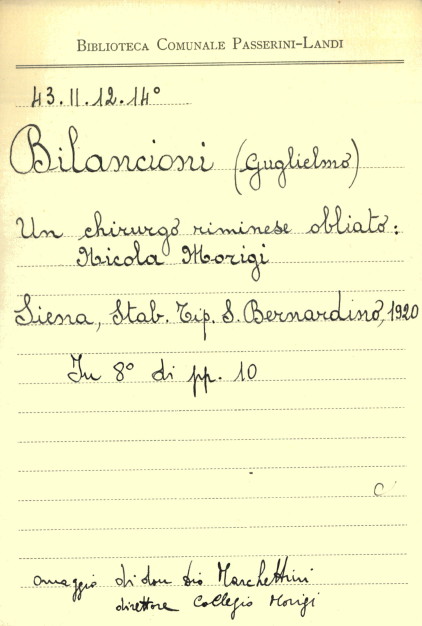 BIBLIOTECA COMUNALE PASSERINI-LANDI
43.II.12.14°
Bilancioni (Guglielmo)
Un chirurgo riminese obliato:
Nicola Morigi
Siena, Stab. Tip. S. Bernardino, 1920
In 8° di pp. 10
omaggio di don Marchettini
direttore Collegio Morigi